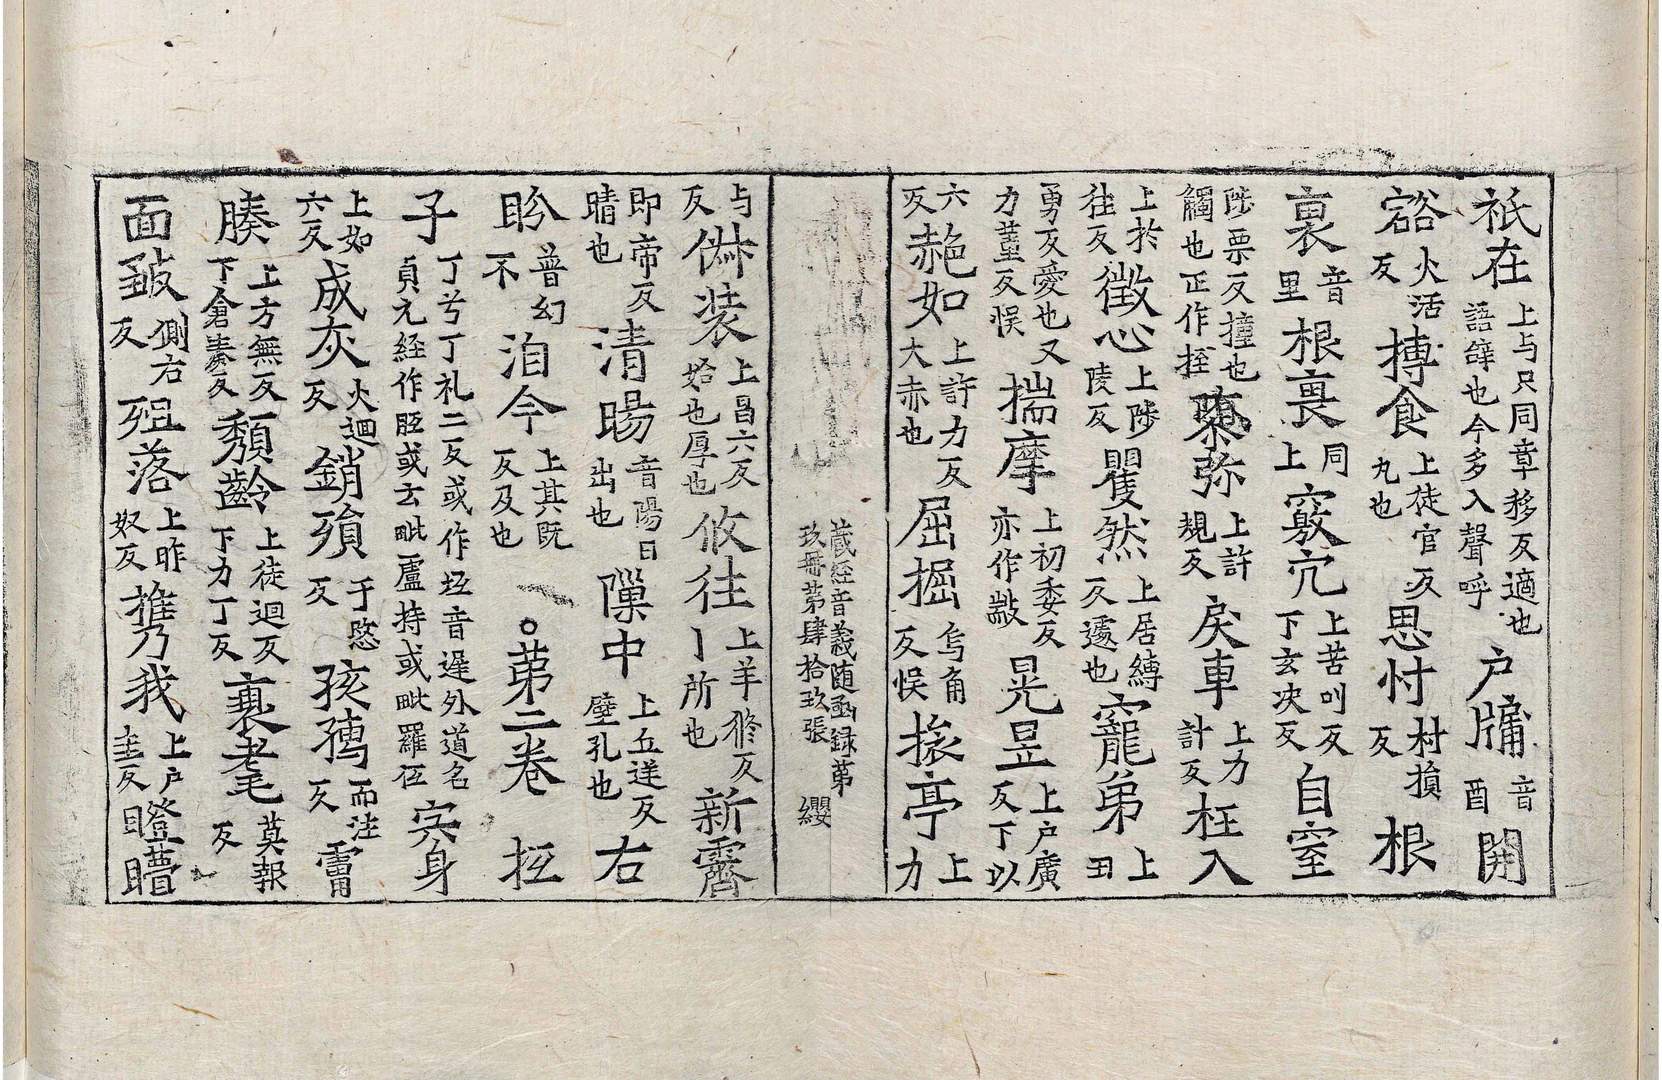 祇在上与只同章移反適也語辝也今多入聲呼户牖音酉開
豁火活反搏食上徒官反丸也思忖村損反根
裏音里根裛同上竅穴上苦叫反下玄决反自窒
陟栗反撞也觸也正作挃隳弥上許規反戾車上力計反枉入
上扵往反徵心上陟陵反矍然上居縛反遽也寵弟上丑
勇反愛也又力董反悮揣摩上初委反亦作敱晃昱上户廣反下以
六反赩如上許力反大赤也屈掘烏角反悮掾亭上力
藏經音義随函録第玖冊第肆拾玖張 纓
与反俶装上昌六反始也厚也攸往上羊修反丨所也新霽
即帝反晴也清暘音陽日出也隟中上丘逆反壁孔也右
盻普幻不洎今上其既反及也○第二卷拞
子丁兮丁礼二反或作坘音遲外道名貞元經作䏡或云毗盧持或毗羅伍宍身
上如六反成灰火迴反銷殞于愍反孩孺而注反膚
腠上方無反下倉奏反頹齡上徒迴反下力丁反衰耄莫報反
面皺側右反殂落上昨奴反携我上户圭反瞪瞢